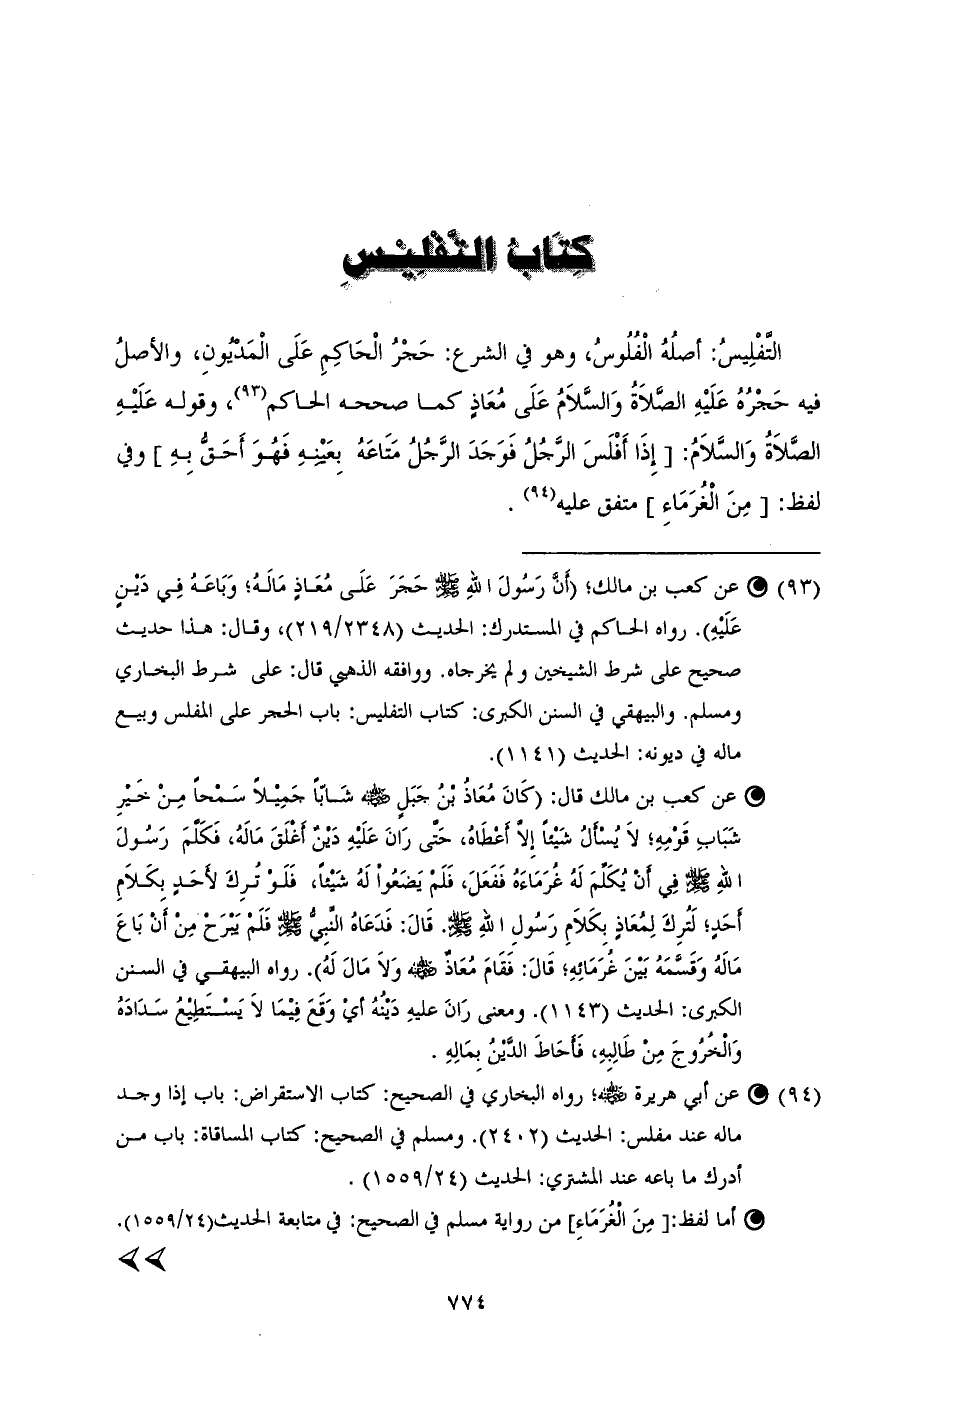 كِتَابُ التَّفْلِيْسِ
التَّفْلِيسُ: أصلُهُ الْفُلُوسُ، وهو في الشرع: حَجْرُ الْحَاكِمِ عَلَى الْمَدْيُونِ، والأصلُ
فيه حَجْرُهُ عَلَيْهِ الصَّلاَةُ وَالسَّلاَمُ عَلَى مُعَاذٍ كما صححه الحاكم(٩٣)، وقوله عَلَيْهِ
الصَّلاَةُ وَالسَّلاَمُ: [ إِذَا أَفْلَسَ الرَّجُلُ فَوَجَدَ الرَّجُلُ مَتَاعَهُ بِعَيْنِهِ فَهُوَ أَحَقُّ بِهِ ] وفي
لفظ: [ مِنَ الْغُرَمَاءِ ] متفق عليه(٩٤) .
(٩٣) عن كعب بن مالك؛ (أَنَّ رَسُولَ اللهِ ﷺ حَجَرَ عَلَى مُعَاذٍ مَالَهُ؛ وَبَاعَهُ فِي دَيْنٍ
عَلَيْهِ). رواه الحاكم في المستدرك: الحديث (٢١٩/٢٣٤٨)، وقال: هذا حديث
صحيح على شرط الشيخين ولم يخرجاه. ووافقه الذهبي قال: على شرط البخاري
ومسلم. والبيهقي في السنن الكبرى: كتاب التفليس: باب الحجر على المفلس وبيع
ماله في ديونه: الحديث (١١٤١).
عن كعب بن مالك قال: (كَانَ مُعَاذُ بْنُ جَبَلٍ ﷺ شَابّاً جَمِيْلاً سَمْحاً مِنْ خَيْرِ
شَبَابِ قَوْمِهِ؛ لاَ يُسْأَلُ شَيْئاً إِلاَّ أَعْطَاهُ، حَتَّى رَانَ عَلَيْهِ دَيْنٌ أَغْلَقَ مَالَهُ، فَكَلَّمَ رَسُولَ
اللهِ ﷺ فِي أَنْ يُكَلِّمَ لَهُ غُرَمَاءَهُ فَفَعَلَ، فَلَمْ يَضَعُواْ لَهُ شَيْئاً، فَلَوْ تُرِكَ لأَحَدٍ بِكَلاَمِ
أَحَدٍ؛ لَتُرِكَ لِمُعَاذٍ بِكَلاَمِ رَسُولِ اللهِ ﷺ. قَالَ: فَدَعَاهُ النَّبِيُّ ﷺ فَلَمْ يَبْرَحْ مِنْ أَنْ بَاعَ
مَالَهُ وَقَسَّمَهُ بَيْنَ غُرَمَائِهِ؛ قَالَ: فَقَامَ مُعَاذٌ رضي الله عنه وَلاَ مَالَ لَهُ). رواه البيهقي في السنن
الكبرى: الحديث (١١٤٣). ومعنى رَانَ عليه دَيْنُهُ أيْ وَقَعَ فِيْمَا لاَ يَسْتَطِيْعُ سَدَادَهُ
وَالْخُرُوجَ مِنْ طَالِبِهِ، فَأَحَاطَ الدَّيْنُ بِمَالِهِ .
(٩٤) عن أبي هريرة رضي الله عنه؛ رواه البخاري في الصحيح: كتاب الاستقراض: باب إذا وجد
ماله عند مفلس: الحديث (٢٤٠٢). ومسلم في الصحيح: كتاب المساقاة: باب من
أدرك ما باعه عند المشتري: الحديث (١٥٥٩/٢٤) .
أما لفظ:[ مِنَ الْغُرَمَاءِ] من رواية مسلم في الصحيح: في متابعة الحديث(١٥٥٩/٢٤).
٧٧٤